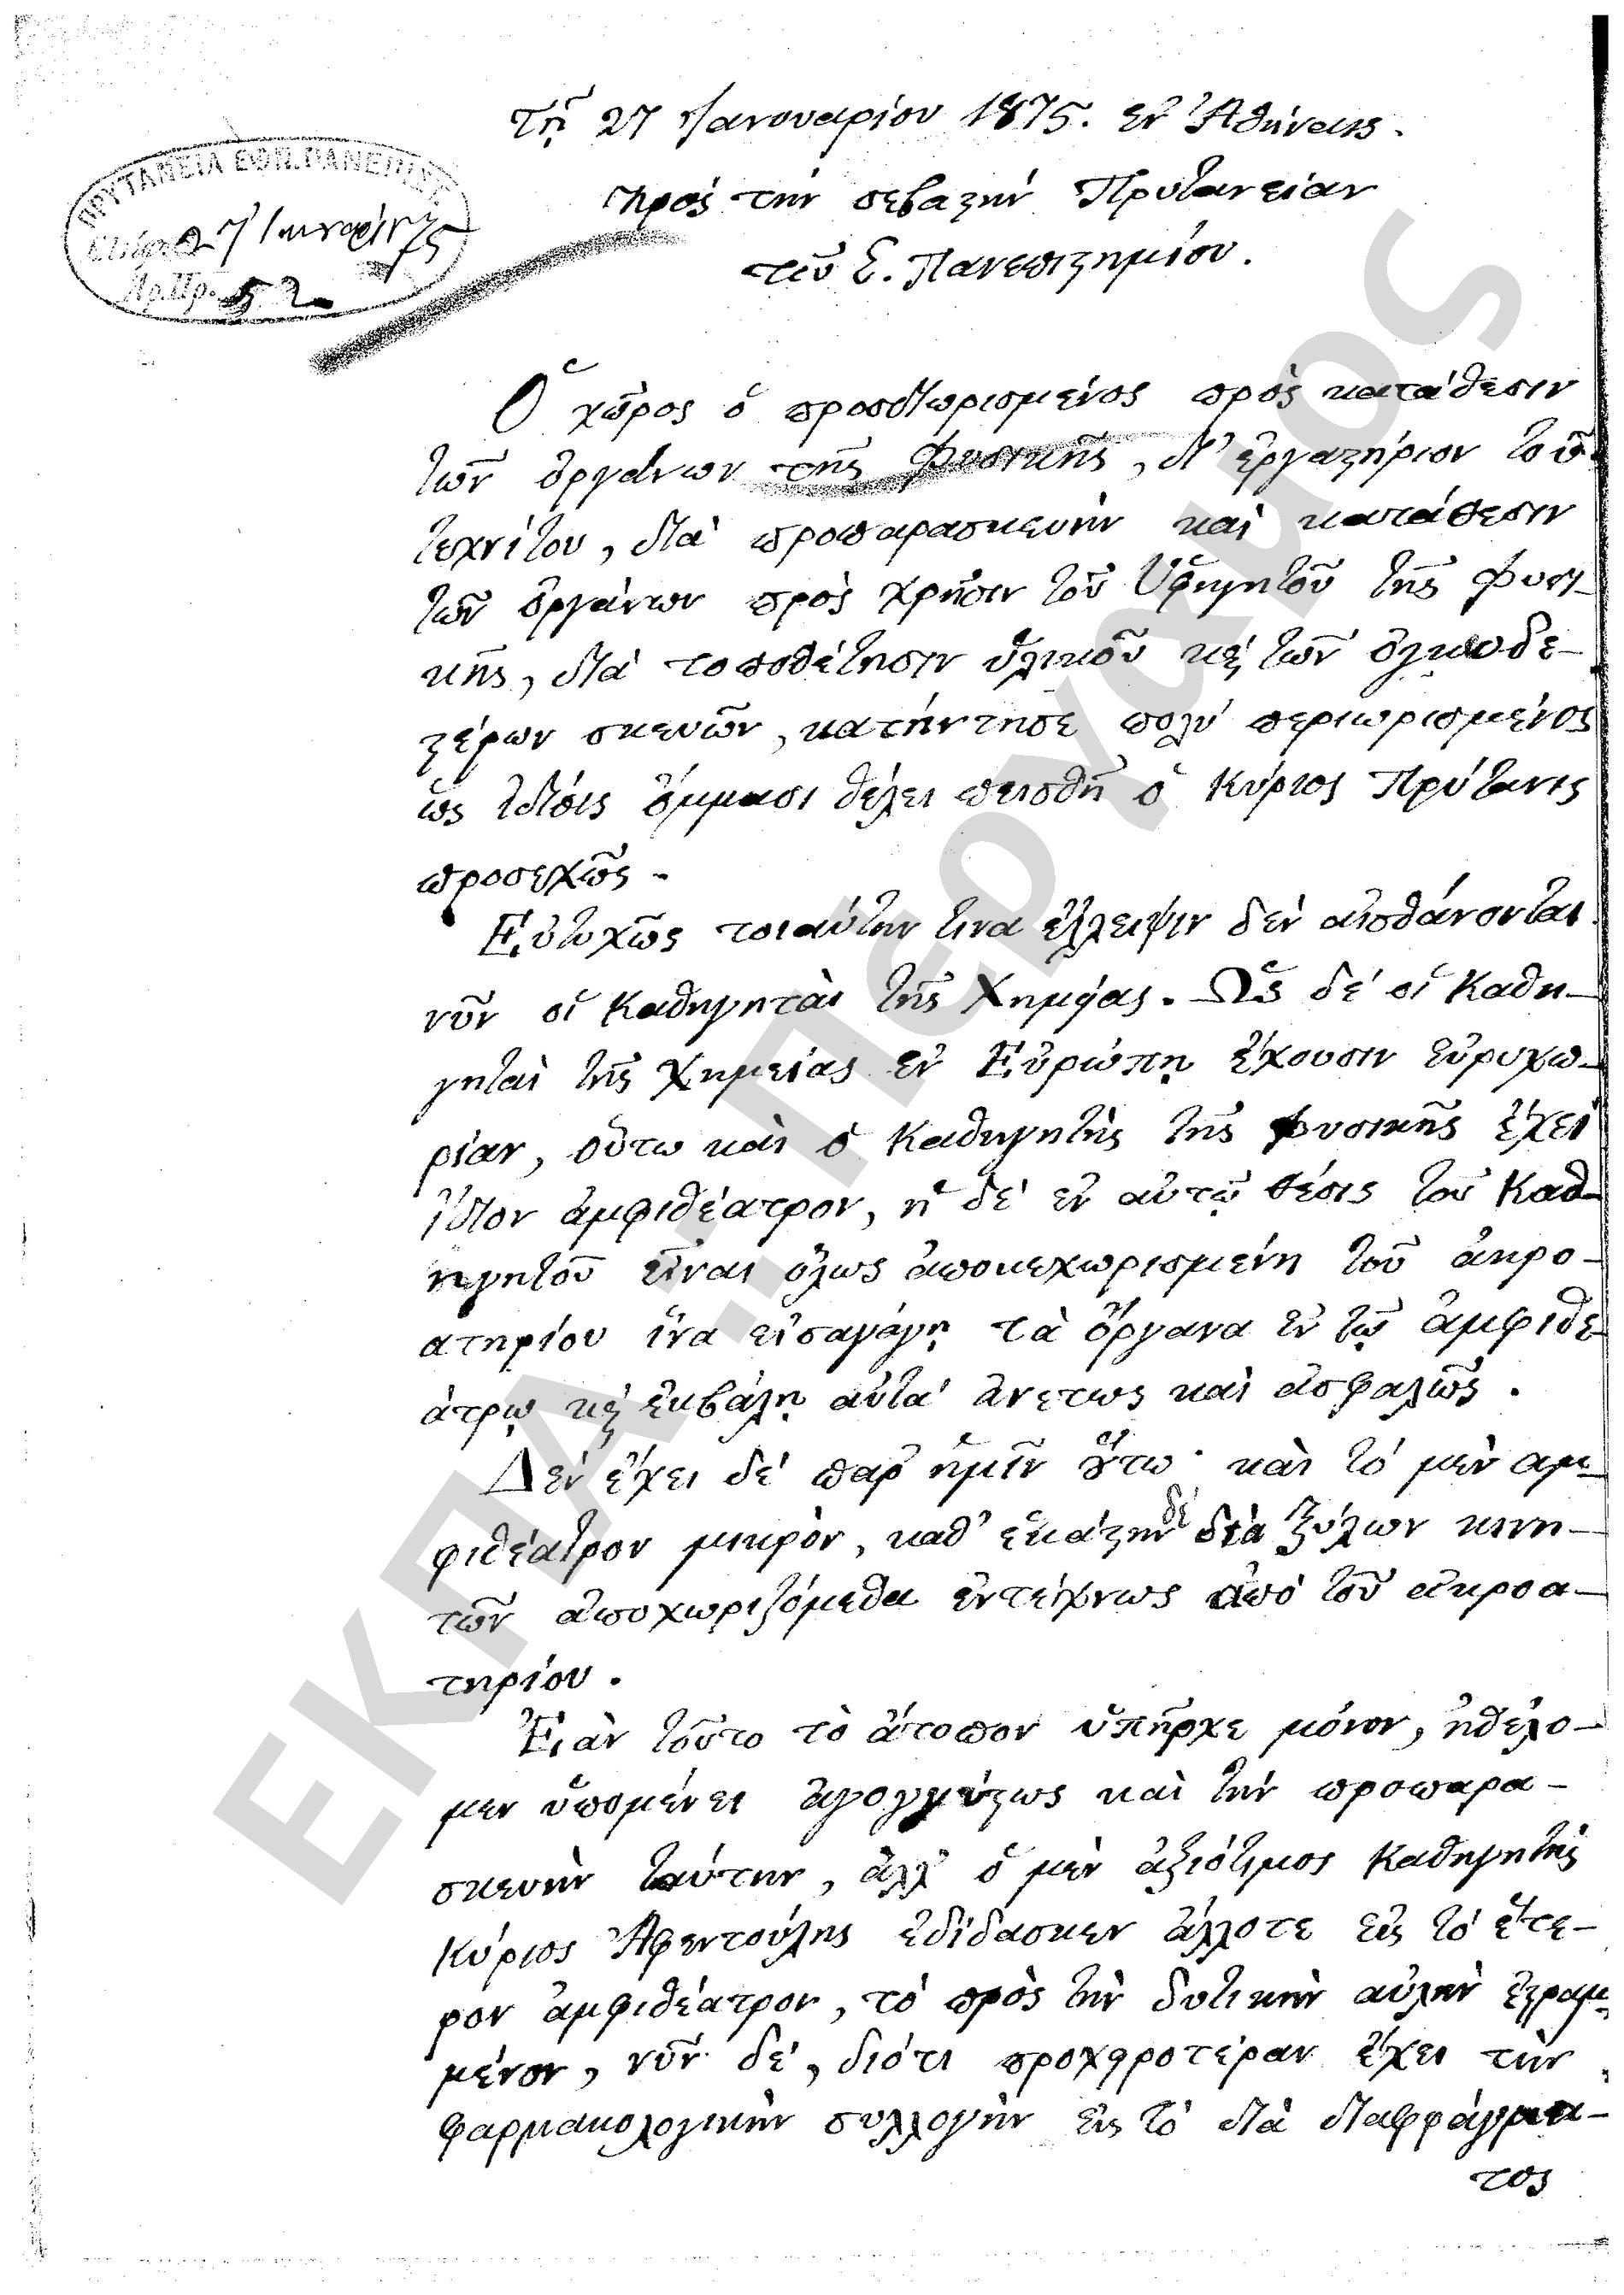 Τῇ 27 Ἰανουαρίου 1875. Ἐν Ἀθήναις.
ΠΡΥΤΑΝΕΙΑ ΕΘΝ. ΠΑΝΕΠΙΣΤ.
27 Ἰανουαρίου 75
Ἀρ. Πρ. 52
Πρὸς τὴν σεβαστὴν Πρυτανείαν
τοῦ Ἐ. Πανεπιστημίου.
Ὁ χῶρος ὁ προσδιωρισμένος πρὸς κατάθεσιν
τῶν ὀργάνων τῆς Φυσικῆς, δι' ἐργαστήριον τοῦ
τεχνίτου, διὰ προπαρασκευὴν καὶ κατάθεσιν
τῶν ὀργάνων πρὸς χρῆσιν τοῦ Ὑφηγητοῦ τῆς Φυσι-
κῆς, διὰ τοποθέτησιν ὑλικοῦ καὶ τῶν ὀγκωδε-
στέρων σκευῶν, κατήντησε πολὺ περιωρισμένος
ὡς ἰδίοις ὄμμασι θέλει πεισθῆ ὁ Κύριος Πρύτανις
προσεχῶς.
Εὐτυχῶς τοιαύτην τινα ἔλλειψιν δὲν αἰσθάνονται
νῦν οἱ Καθηγηταὶ τῆς Χημείας. Ὡς δὲ οἱ Καθη-
γηταὶ τῆς Χημείας ἐν Εὐρώπῃ ἔχουσιν εὐρυχω-
ρίαν, οὕτω καὶ ὁ Καθηγητὴς τῆς Φυσικῆς ἔχει
ἴδιον ἀμφιθέατρον, ἡ δὲ ἐν αὐτῷ θέσις τοῦ Καθ-
ηγητοῦ εἶναι ὅλως ἀποκεχωρισμένη τοῦ ἀκρο-
ατηρίου ἵνα εἰσαγάγῃ τὰ ὄργανα ἐν τῷ ἀμφιθε-
άτρῳ καὶ ἐκβάλῃ αὐτὰ ἀνετως καὶ ἀσφαλῶς.
Δὲν ἔχει δὲ παρ' ἡμῖν οὕτω· καὶ τὸ μὲν ἀμ-
φιθέατρον μικρὸν, καθ' ἑκάστην δὲ διὰ ξύλων κινη-
τῶν ἀποχωριζόμεθα ἐντέχνως ἀπὸ τοῦ ἀκροα-
τηρίου.
Ἐὰν τοῦτο τὸ ἄτοπον ὑπῆρχε μόνον, ἠθέλο-
μεν ὑπομένει ἀγογγύστως καὶ τὴν προπαρα-
σκευὴν ταύτην, ἀλλ' ὁ μὲν ἀξιότιμος Καθηγητὴς
Κύριος Ἀφεντούλης ἐδίδασκεν ἄλλοτε εἰς τὸ ἕτε-
ρον ἀμφιθέατρον, τὸ πρὸς τὴν δυτικὴν αὐλὴν ἐστραμ-
μένον, νῦν δὲ, διότι προχειροτέραν ἔχει τὴν
φαρμακολογικὴν συλλογὴν εἰς τὸ διὰ διαφράγμα-
τος
ΕΚΠΑ...Περγαμος